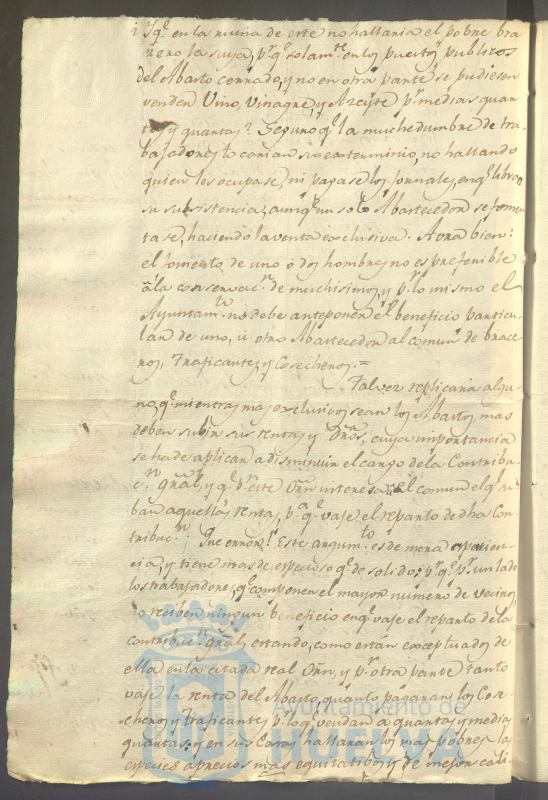 i Sqe. en la ruina de este no hallaria el pobre bra
zero la suya, pr. qe. solamte. en los puestos publicos
del Abasto cerrado, y no en otra parte se pudiesen
vender Vino, Vinagre, y Azeyte pr. medias quar
tas y quartas? Seguro qe. la muchedumbre de tra
bajadores to corian su exterminio, no hallando
quien los ocupase, ni pagase los jornales, en qe. libran
su subsistencia, aunqe. un solo Abastecedor se fomen
tase, haciendo la venta exclusiva. Aora bien:
el fomento de uno ó dos hombres no es preferible
â la conservacn. de muchisimos, y pr. lo mismo el
Ayuntamto. no debe anteponer el beneficio particu
lar de uno, ú otro Abastecedor al comun de brace
ros, Traficantes, y Cosecheros. =
Talvez replicaria algu-
no, qe. mientras mas exclusivos sean los Abastos, mas
deben subir sus rentas, y dros., cuya importancia
se ha de aplicar a disminuir el cargo de la Contribu
cn. gral, y qe. pr. este orn interesa el comun el qe. su
ban aquellas rentas, pa. qe. vaje el reparto de dha Con
tribucn. Que error! Este argumto. es de mera aparien-
cia, y tiene mas de especioso qe. de solido: pr. qe. pr. un lado
los trabajadores, qe. componen el mayor numero de vecinos,
no reciben ningun beneficio en qe. vaje el reparto de la
contribucn. gral, estando, como están exceptuados de
ella en la citada real Orn, y pr. otra parte tanto
vaje la renta del Abasto, quanto pagaran los Cose-
cheros y Traficantes pr. lo qe. vendan a quartas y medias
quartas: y en sus Casas hallaran los mas pobres las
especies a precios mas equitatibos y de mejor cali-
Ayuntamiento de
HUELVA